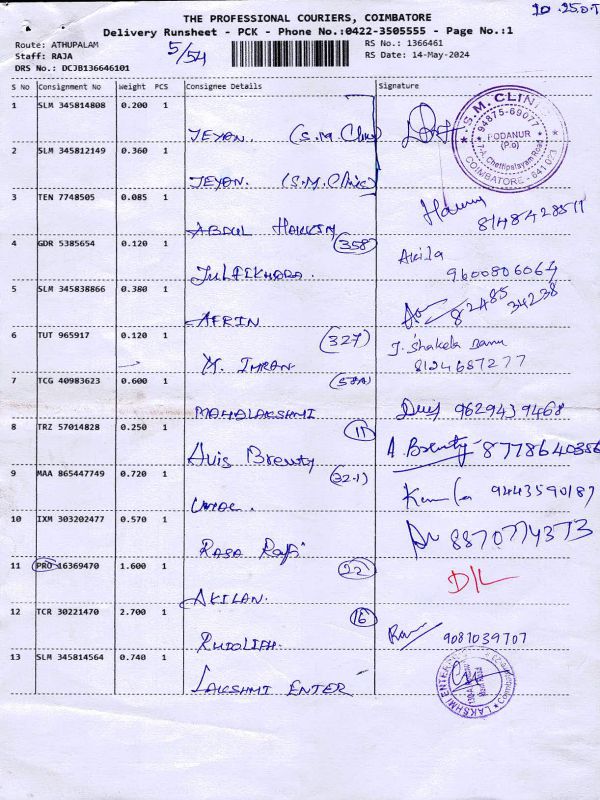 THE PROFESSIONAL COURIERS, COIMBATORE
Delivery Runsheet - PCK - Phone No.:0422-3505555 - Page No.:1
Route: ATHUPALAM
Staff: RAJA
DRS No.: DCJB136646101
5/54
RS No.: 1366461
RS Date: 14-May-2024
S No Consignment No Weight PCS Consignee Details Signature
1 SLM 345814808 0.200 1
JEYON. (S.M. Clinic)
S.M. CLINIC
94875-69077
PODANUR
(P.o)
Chettipalayam Road
COIMBATORE - 641 023
2 SLM 345812149 0.360 1
JEYON. (S.M. Clinic)
3 TEN 7748505 0.085 1
ABDUL HAKKIM
8148428511
4 GDR 5385654 0.120 1 (358)
JULFIKHARA.
Akila
9600806064
5 SLM 345838866 0.380 1
AFRIN
82485 34238
6 TUT 965917 0.120 1 (327)
M. IMRAN
J. Shakela Banu
8124687277
7 TCG 40983623 0.600 1 (58A)
MAHALAKSHMI
9629439468
8 TRZ 57014828 0.250 1 (11)
Avis Breuty
A. Breuty 8778640356
9 MAA 865447749 0.720 1 (32-1)
9443590187
10 IXM 303202477 0.570 1
RASA Rafi
8870774373
11 PRO 16369470 1.600 1 (22)
AKILAN.
D/L
12 TCR 30221470 2.700 1 (16)
RUDOLIPH.
9087039707
13 SLM 345814564 0.740 1
LAKSHMI ENTER
LAKSHMI ENTER